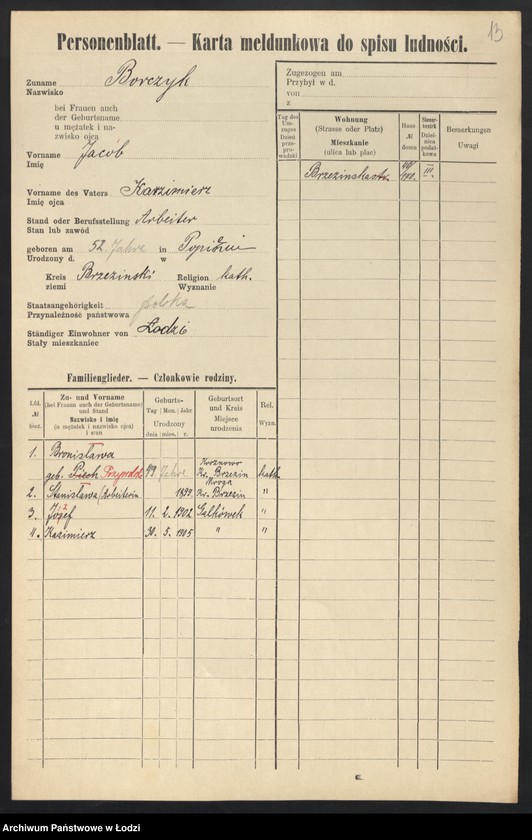 13
Personenblatt. — Karta meldunkowa do spisu ludności.
Zuname
Nazwisko
Borczyk
bei Frauen auch
der Geburtsname
u mężatek i na-
zwisko ojca
Vorname
Imię
Jacób
Vorname des Vaters
Imię ojca
Kazimierz
Stand oder Berufsstellung
Stan lub zawód
Arbeiter
geboren am 52 Jahre in
Urodzony d. w
Kreis
ziemi
Brzeziński
Religion
Wyznanie
kath.
Staatsangehörigkeit
Przynależność państwowa
polska
Ständiger Einwohner von
Stały mieszkaniec
Łodzi
Zugezogen am
Przybył w d.
von
z
Tag des Um-zuges
Dzień prze-prowadzki
Wohnung
(Strasse oder Platz)
Mieszkanie
(ulica lub plac)
Haus
№
domu
Steuer-bezirk
Dziel-nica podat-kowa
Bemerkungen
Uwagi
Brzezinskastr. III.
Familienglieder. — Członkowie rodziny.
Lfd.
№
bież.
Zu- und Vorname
(bei Frauen auch der Geburtsname)
und Stand
Nazwisko i imię
(u mężatek i nazwisko ojca)
i stan
Geburts-
Tag Mon. Jahr
Urodzony
dnia mies. r.
Geburtsort
und Kreis
Miejsce
urodzenia
Rel.
Wyzn.
1. Bronisława
geb. Piech 49 Jahre Kr. Brzezin kath.
2. Stanisława / Arbeiterin 1899. Kr. Brzezin "
3. Józef 11. 2. 1902 Gałkówek "
4. Kazimierz 30. 5. 1905 " "
Archiwum Państwowe w Łodzi